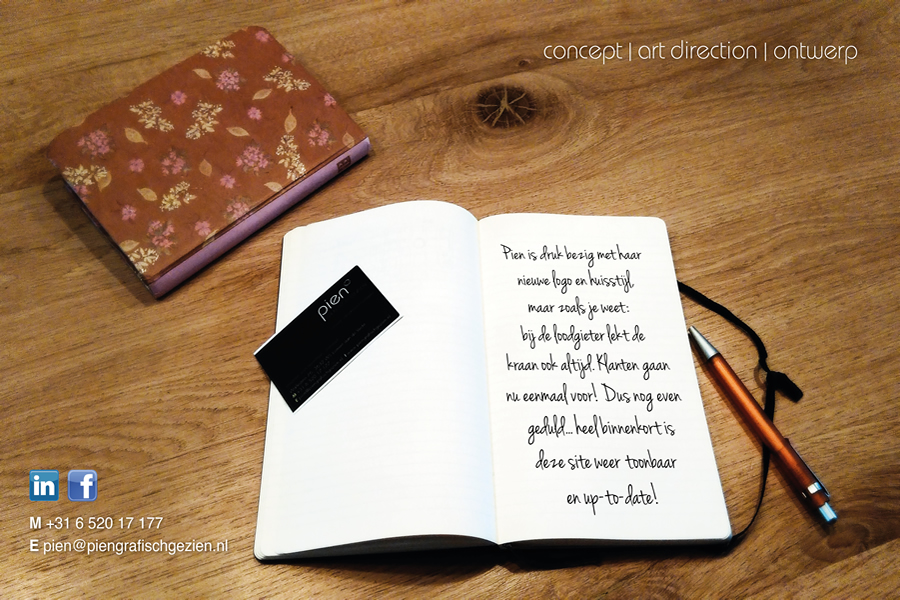 concept | art direction | ontwerp
pien
Pien is druk bezig met haar
nieuwe logo en huisstijl,
maar zoals je weet:
bij de loodgieter lekt de
kraan ook altijd. Klanten gaan
nu eenmaal voor! Dus nog even
geduld... heel binnenkort is
deze site weer toonbaar
en up-to-date!
in f
M +31 6 520 17 177
E pien@piengrafischgezien.nl